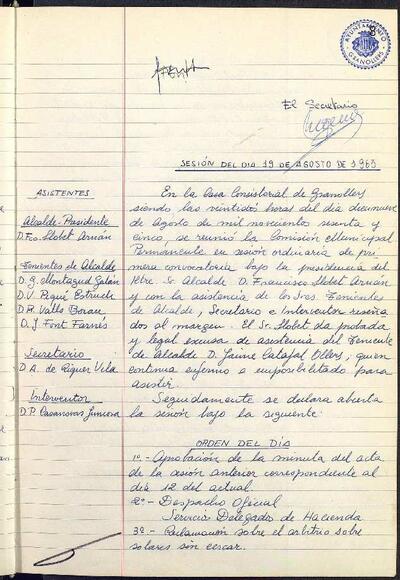 AYUNTAMIENTO
GRANOLLERS
8
El Secretario
SESIÓN DEL DIA 19 DE AGOSTO DE 1965
ASISTENTES
Alcalde-Presidente
D. Fco. Llobet Arnán
Tenientes de Alcalde
D. G. Montagud Galán
D. V. Piqué Estruch
D. R. Valls Borau
D. J. Font Farnés
Secretario
D. A. de Riquer Vila
Interventor
D. P. Casanovas
En la Casa Consistorial de Granollers
siendo las veintidos horas del día diecinueve
de Agosto de mil novecientos sesenta y
cinco, se reunió la Comisión Municipal
Permanente en sesión ordinaria de pri-
mera convocatoria bajo la presidencia del
Iltre. Sr. Alcalde D. Francisco Llobet Arnán
y con la asistencia de los Sres. Tenientes
de Alcalde, Secretario e Interventor reseña-
dos al margen. El Sr. Llobet da probada
y legal excusa de asistencia del Teniente
de Alcalde D. Jaime Catafal Ollers, quien
continua enfermo e imposibilitado para
asistir.
Seguidamente se declara abierta
la sesión bajo la siguiente:
ORDEN DEL DÍA
1º.- Aprobación de la minuta del acta
de la sesión anterior correspondiente al
día 12 del actual.
2º.- Despacho Oficial
Servicio Delegados de Hacienda
3º.- Reclamación sobre el arbitrio sobre
solares sin cercar.